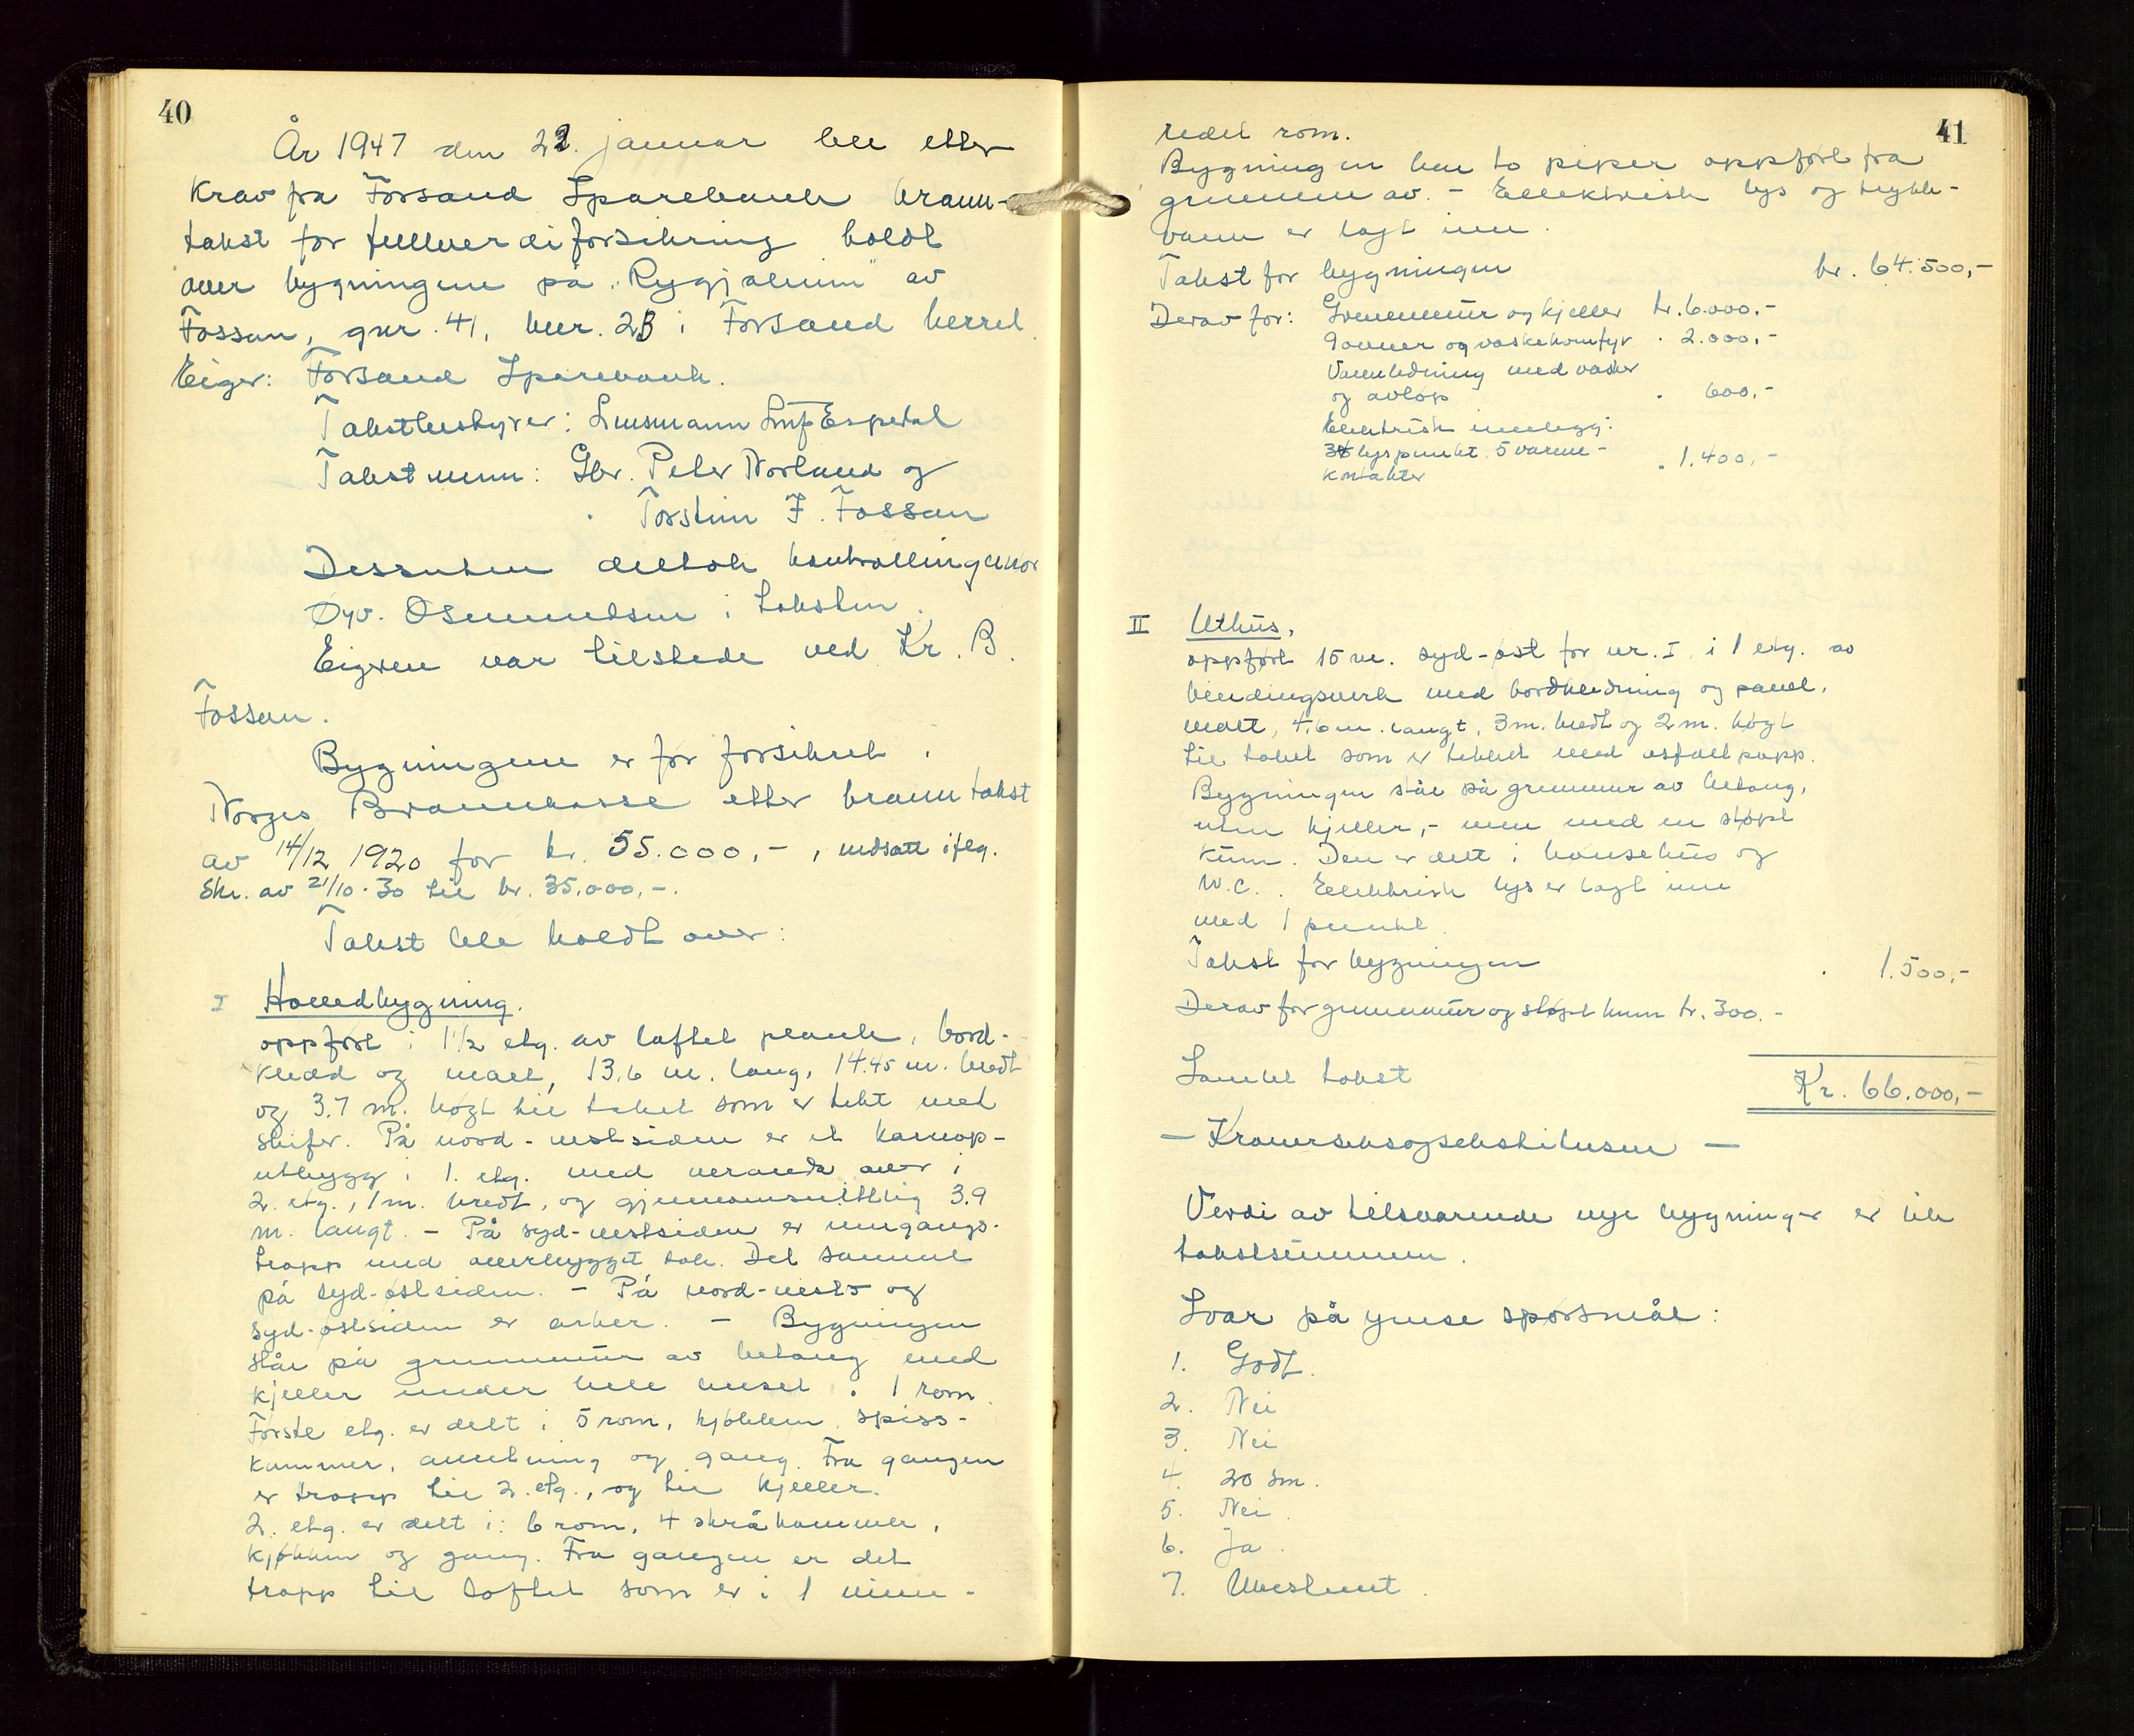 40
År 1947 den 22. januar ble etter
krav fra Forsand Sparebank brann-
takst for fullverdiforsikring holdt
over bygningene på "Rygjaheim" av
Fossan, gnr. 41, bnr. 23 i Forsand herred
Eiger: Forsand Sparebank.
Takstbestyrer: Lensmann Espedal
Takstmenn: Gbr. Peter Norland og
" Torstein F. Fossan
Dessuten deltok kontrollingeniør
Øyv. Osmundsen i taksten.
Eigeren var tilstede ved Kr. B.
Fossan.
Bygningene er før forsikret i
Norges Brannkasse etter branntakst
av 14/12 1920 for kr. 55.000,-, nedsatt iflg.
Skr. av 21/10-30 til kr. 35.000,-.
Takst ble holdt over:
I Hovedbygning.
oppført i 1½ etg. av laftet plank, bord-
kledd og malt, 13,6 m. lang, 14.45 m. bredt
og 3.7 m. høgt til taket som er tekt med
skifer. På nord-vestsiden er et karnap-
utbygg i 1. etg. med veranda over i
2. etg., 1 m. bredt, og gjennomsnittlig 3.9
m. langt. - På syd-vestsiden er inngangs-
trapp med overbygget tak. Det samme
på syd-østsiden. - På nord-vest- og
syd-østsiden er arker. - Bygningen
står på grunnmur av betong med
kjeller under hele huset i 1 rom.
Første etg. er delt i 5 rom, kjøkken, spiss-
kammer, anretning og gang. Fra gangen
er trapp til 2. etg., og til kjeller.
2. etg. er delt i: 6 rom, 4 skråkammer,
kjøkken og gang. Fra gangen er det
trapp til loftet som er i 1 uinn-
41
redet rom.
Bygningen har to piper oppført fra
grunnen av. - Elektrisk lys og trykk-
vann er lagt inn.
Takst for bygningen kr. 64.500,-
Derav for: Grunnmur og kjeller kr. 6.000,-
9 ovner og vaskekomfyr " 2.000,-
Vannledning med vasker
og avløp " 600,-
Elektrisk innlegg:
34 lyspunkt. 5 varme-
kontakter " 1.400,-
II Uthus,
oppført 15 m. syd-øst for nr. I i 1 etg. av
bindingsverk med bordkledning og panel,
malt, 4,6 m. langt, 3 m. bredt og 2 m. høgt
til taket som er tekket med asfaltpapp.
Bygningen står på grunnmur av betong,
uten kjeller, - men med en støpt
kum. Den er delt i hønsehus og
W.C. . Elektrisk lys er lagt inn
med 1 punkt.
Takst for bygningen " 1.500,-
Derav for grunnmur og støpt kum kr. 300.-
Samlet takst Kr. 66.000,-
Verdi av tilsvarende nye bygninger er lik
takstsummen.
Svar på ymse spørsmål:
1. Godt.
2. Nei
3. Nei
4. 20 sm.
5. Nei.
6. Ja.
7. Ubestemt.